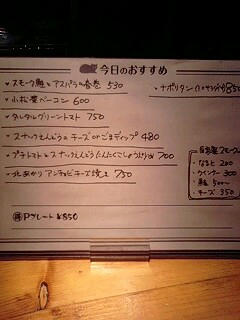 今日のおすすめ
・スモーク鮭とアスパラの春巻 530
・小松菜ベーコン 600
・タルタルグリーントマト 750
・スナックえんどうのチーズorごまディップ 480
・プチトマトとスナックえんどう 700
・北あかりアンチョビチーズ焼き 750
Pプレート ¥850
・ナポリタン 850
自家製スモーク
・なると 200
・ウインナー 300
・鮭 500〜
・チーズ 350